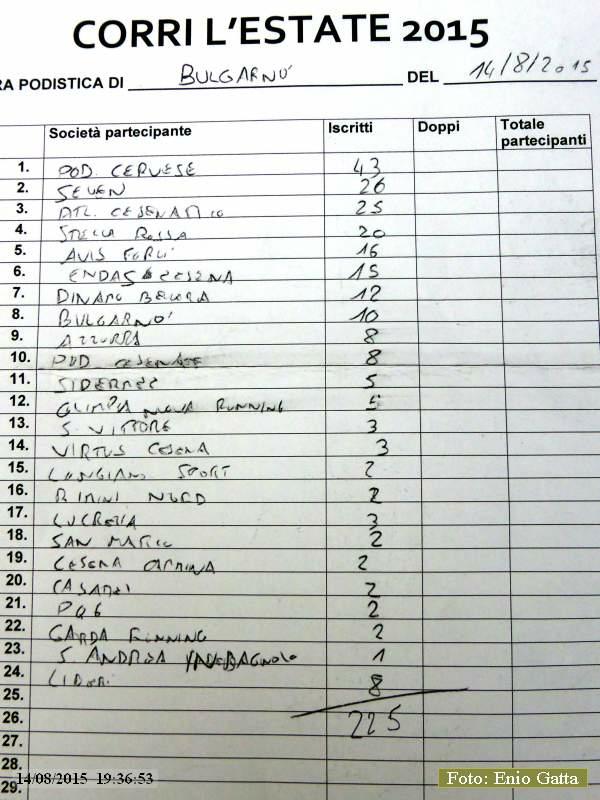 CORRI L'ESTATE 2015
RA PODISTICA DI BULGARNO' DEL 14/8/2015
Società partecipante Iscritti Doppi Totale partecipanti
1. POD. CERVESE 43
2. SEVEN 26
3. ATL. CESENATICO 25
4. STELLA ROSSA 20
5. AVIS FORLÌ 16
6. ENDAS CESENA 15
7. DINAMO 12
8. BULGARNO' 10
9. AZZURRA 8
10. POD. CESENATE 8
11. 5
12. OLIMPIA NOVA RUNNING 5
13. S. VITTORE 3
14. VIRTUS CESENA 3
15. LONGIANO SPORT 2
16. RIMINI NORD 2
17. LUCREZIA 3
18. SAN MARCO 2
19. CESENA 2
20. CASADEI 2
21. 2
22. GARDA RUNNING 2
23. S. ANDREA 1
24. LIBERI 8
25.
26. 225
27.
28.
29.
14/08/2015 19:36:53
Foto: Enio Gatta